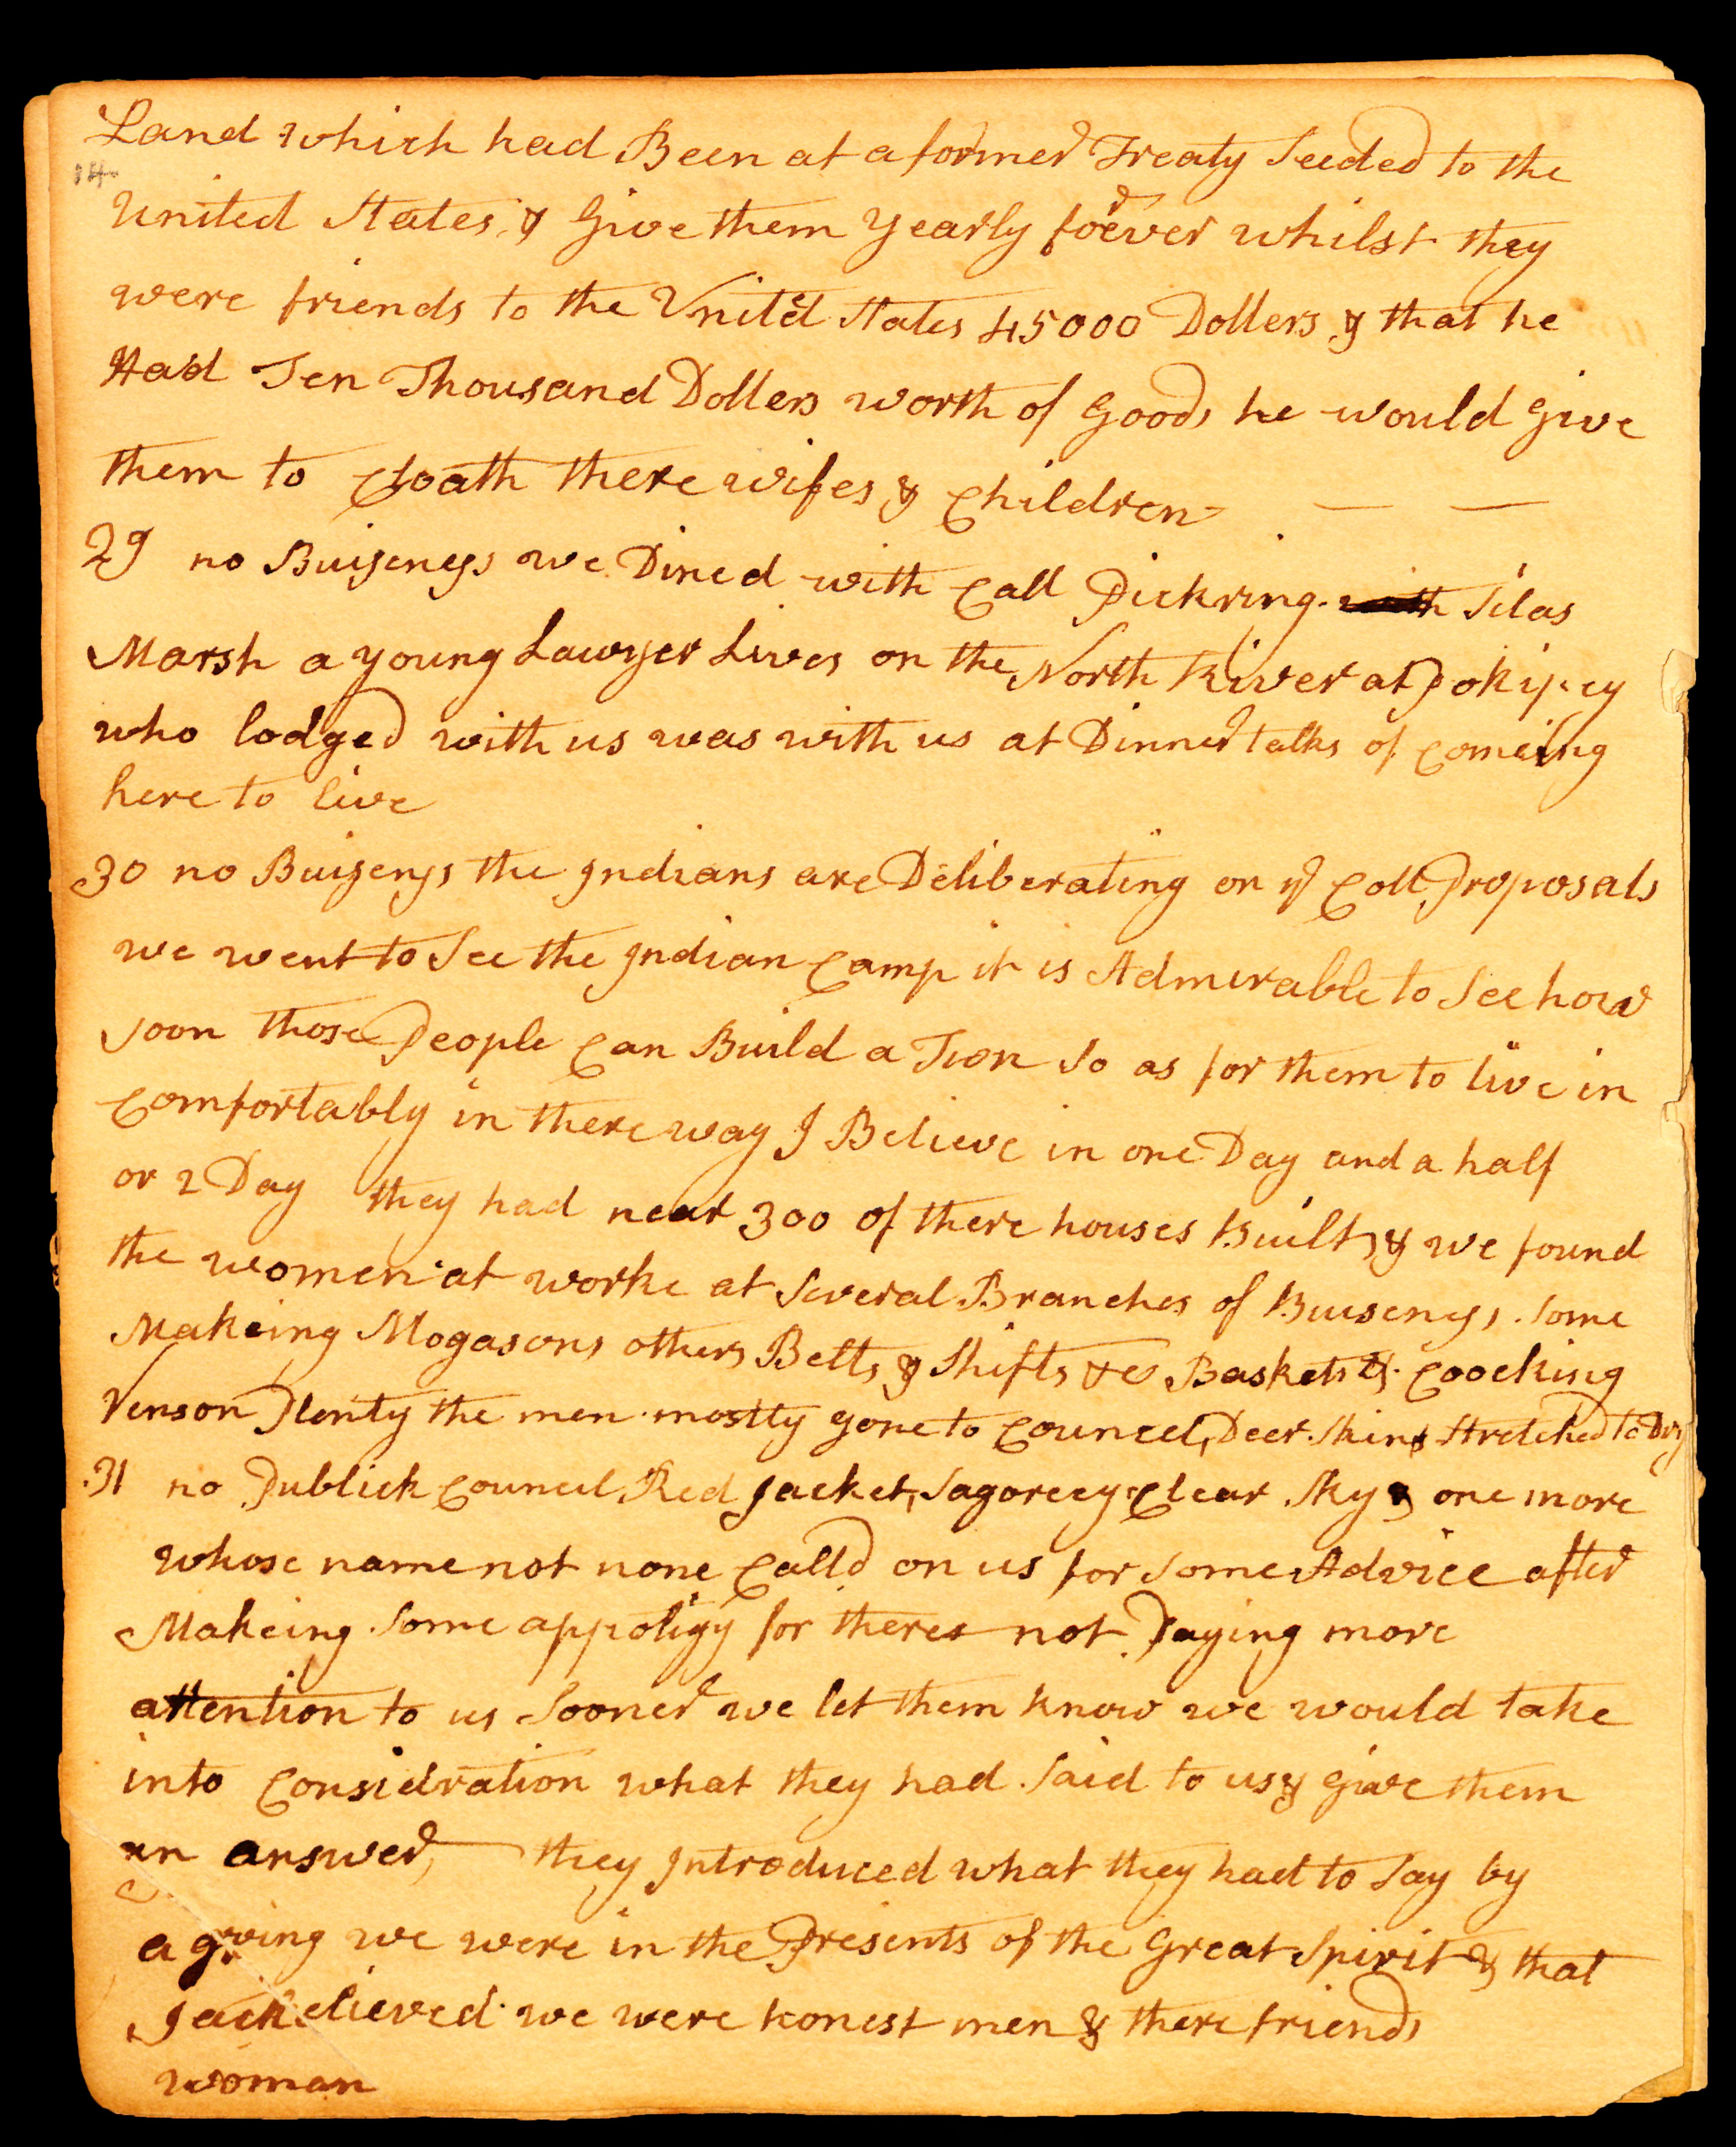 Land which had Been at a former Treaty Seeded to the
14
United States, & Give them yearly forever whilst they
were friends to the Unitëd States 45000 Dollers & that he
Had Ten Thousand Dollers worth of Goods he would give
them to Cloath there wifes & Children — —
29 no Buiseness we Dined with Coll Pickring. Silas
Marsh a young Lawyer Lives on the North River at Pokipcy
who lodged with us was with us at Dinner talks of Comeing
here to live
30 no Buiseness the Indians are Deliberating on ye Coll Proposals
we went to See the Indian Camp it is Admirable to See how
soon those People Can Build a Town So as for them to live in
Comfortably in there way I Believe in one Day and a half
or 2 Day they had near 300 of there houses Built, & we found
the women at worke at Several Branches of Buiseness. Some
Makeing Mogasons others Belts & Shifts &c Baskets &. Coocking
Venson Plenty the men mostly gone to Councel, Deer Skins Stretched to Dry
31 no Publick Council Red Jacket, Sagoreey Clear Sky & one more
whose name not none Calld on us for Some Advice after
Makeing Some appoligy for theres not Paying more
attention to us Sooner we let them know we would take
into Considration what they had Said to us & give them
an answer, they Introduced what they had to Say by
a we were in the Presents of the Great Spirit & that
we were honest men & there friends
woman